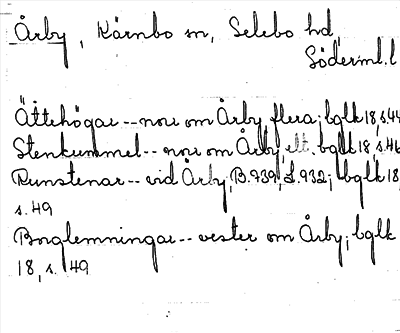 Årby, Kärnbo sn, Selebo hd,
Söderml. l
Ättehögar -- norr om Årby flera; bglk 18, s. 44
Stenkummel -- norr om Årby, ett. bglk 18, s. 46
Runstenar -- vid Årby, B. 939, L. 932; bglk 18,
s. 49
Borglemningar -- vester om Årby; bglk
18, s. 49